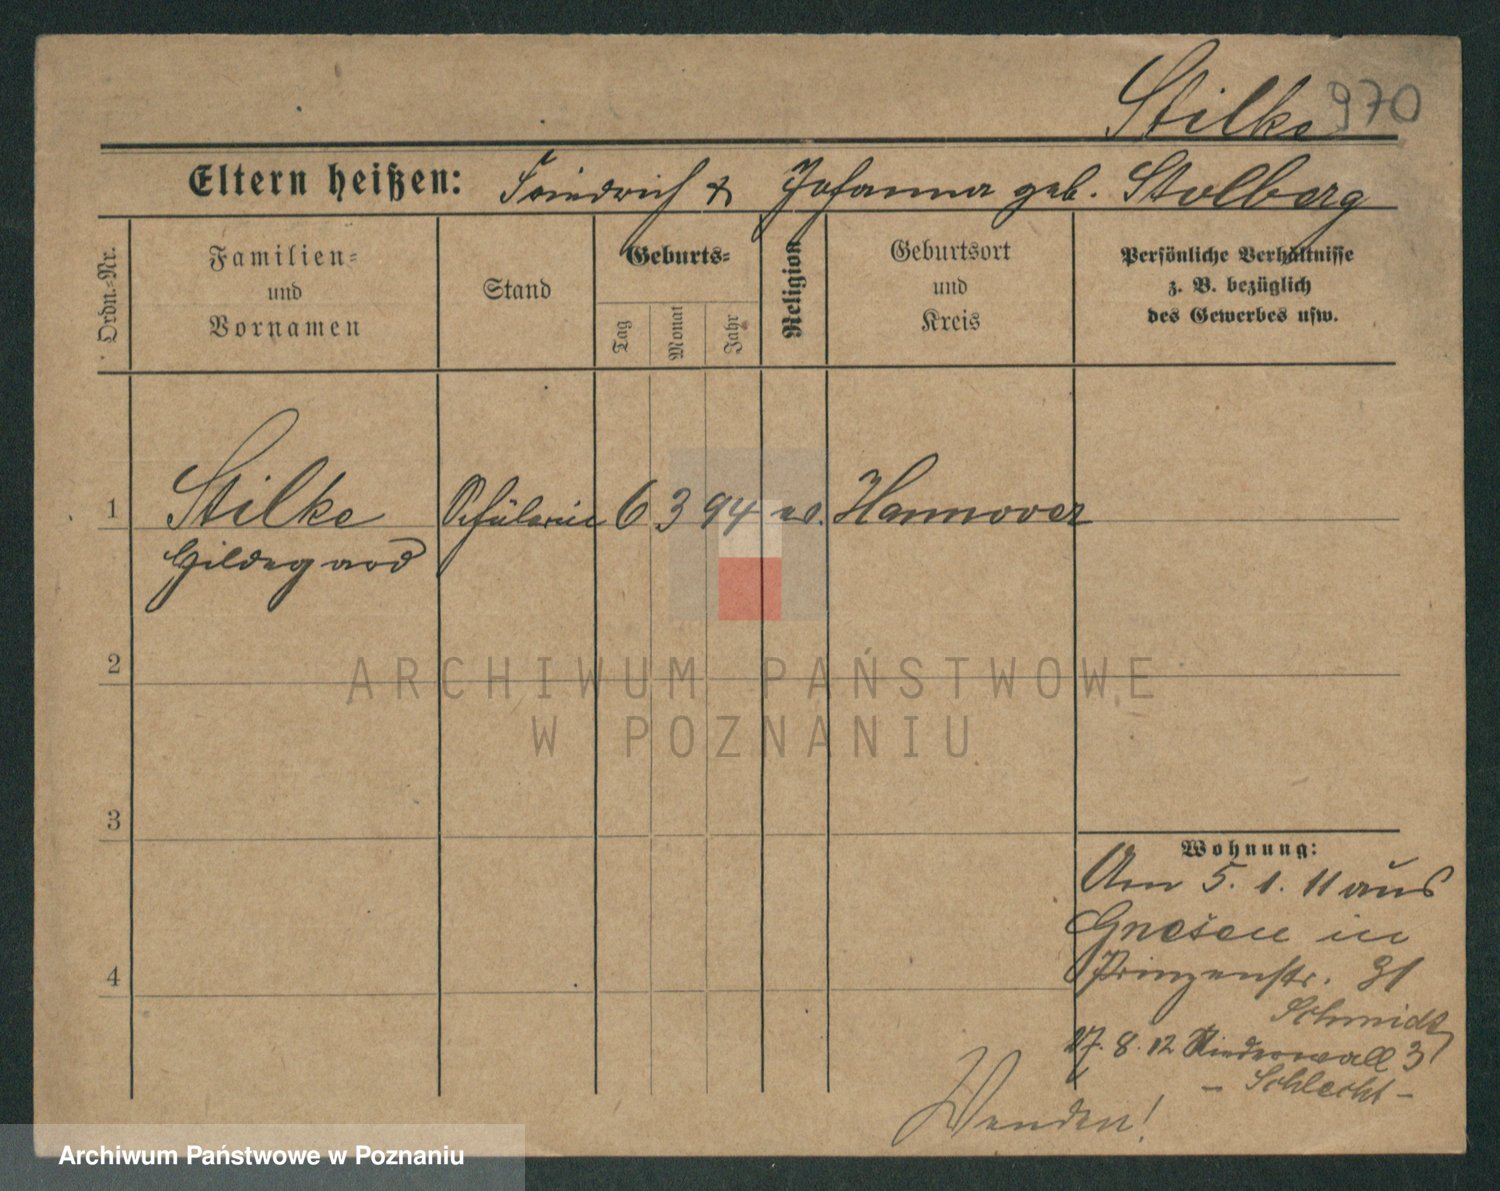 Stilke 970
Eltern heißen: Friedrich & Johanna geb. Stolberg
Ordn.-Nr.
Familien-
und
Vornamen
Stand
Geburts-
Tag
Monat
Jahr
Religion
Geburtsort
und
Kreis
Persönliche Verhältnisse
z. B. bezüglich
des Gewerbes usw.
1 Stilke Schülerin 6 3 94 ev. Hannover
Hildegard
2
ARCHIWUM PAŃSTWOWE
W POZNANIU
3
Wohnung:
Am 5. 1. 11 aus
Gnesen in
4
Prinzenstr. 31
Schmidt
27. 8. 12 Niederwall 3
- Schlecht -
Wenden!
Archiwum Państwowe w Poznaniu